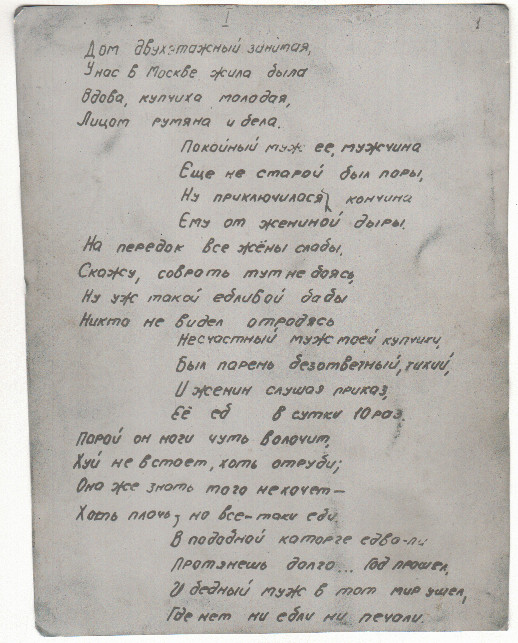 I
1
Дом двухэтажный занимая,
У нас в Москве жила была
Вдова, купчиха молодая,
Лицом румяна и бела.
Покойный муж ее, мужчина
Еще не старой был поры,
Ну приключилася кончина
Ему от жениной дыры.
На передок все жёны слабы,
Скажу, соврать тут не боясь,
Ну уж такой ебливой бабы
Никто не видел отродясь
Несчастный муж моей купчихи,
Был парень безответный, тихий,
И женин слушая приказ,
Её еб в сутки 10 раз.
Порой он ноги чуть волочит,
Хуй не встает, хоть отруби;
Она же знать того не хочет—
Хоть плачь, но все-таки еби.
В подобной каторге едва-ли
Протянешь долго... Год прошел,
И бедный муж в тот мир ушел,
Где нет ни ебли ни печали.